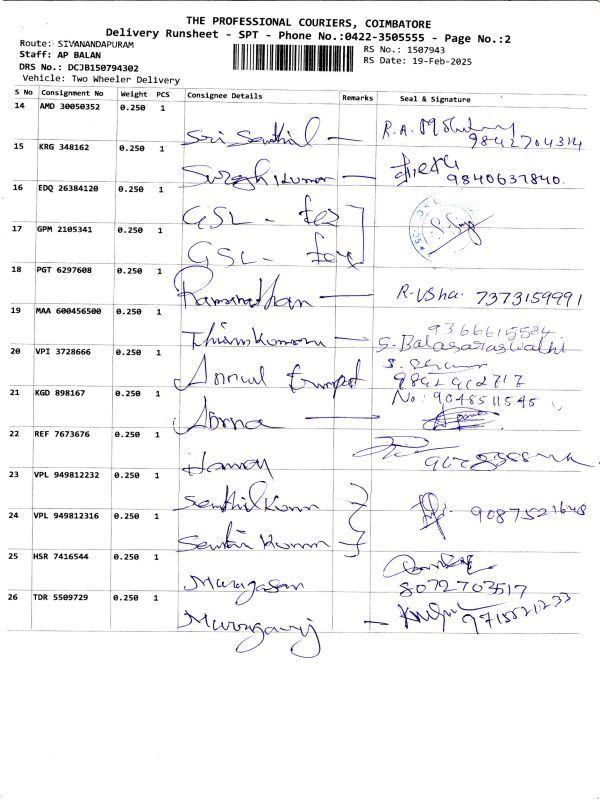 THE PROFESSIONAL COURIERS, COIMBATORE
Delivery Runsheet - SPT - Phone No.:0422-3505555 - Page No.:2
Route: SIVANANDAPURAM
RS No.: 1507943
Staff: AP BALAN
RS Date: 19-Feb-2025
DRS No.: DCJB150794302
Vehicle: Two Wheeler Delivery
S No Consignment No Weight PCS Consignee Details Remarks Seal & Signature
14 AMD 30050352 0.250 1
Sri Senthil — R.A.
15 KRG 348162 0.250 1
Suresh Kumar — 9840637840.
16 EDQ 26384120 0.250 1
GSL -
17 GPM 2105341 0.250 1
GSL -
18 PGT 6297608 0.250 1
Ramanathan — R. Usha. 7373159991
19 MAA 600456500 0.250 1
9366615584
S. Balasaraswathi
20 VPI 3728666 0.250 1
21 KGD 898167 0.250 1
No: 9048511545
22 REF 7673676 0.250 1
23 VPL 949812232 0.250 1
Senthil Kumar
9087521648
24 VPL 949812316 0.250 1
Kumar
25 HSR 7416544 0.250 1
Murugesan 8072703517
26 TDR 5509729 0.250 1